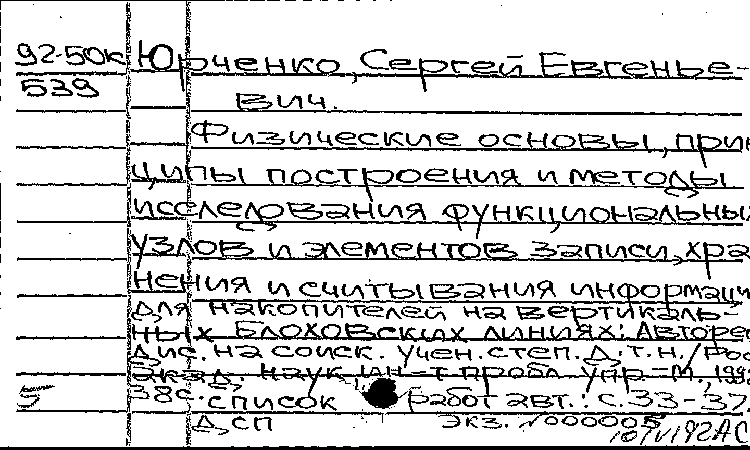 92-50к Юрченко, Сергей Евгенье-
539 вич.
Физические основы, прин
ципы построения и методы
исследования функциональны
узлов и элементов записи, хра
нения и считывания информаци
для накопителей на вертикаль-
ных Блоховских линиях: Авторе
дис. на соиск. учен. степ. д.т.н./Рос
акад. наук ин-т пробл. упр.-М., 199
5 38с. список работ авт.: с.33-37.
д,сп экз. №000005